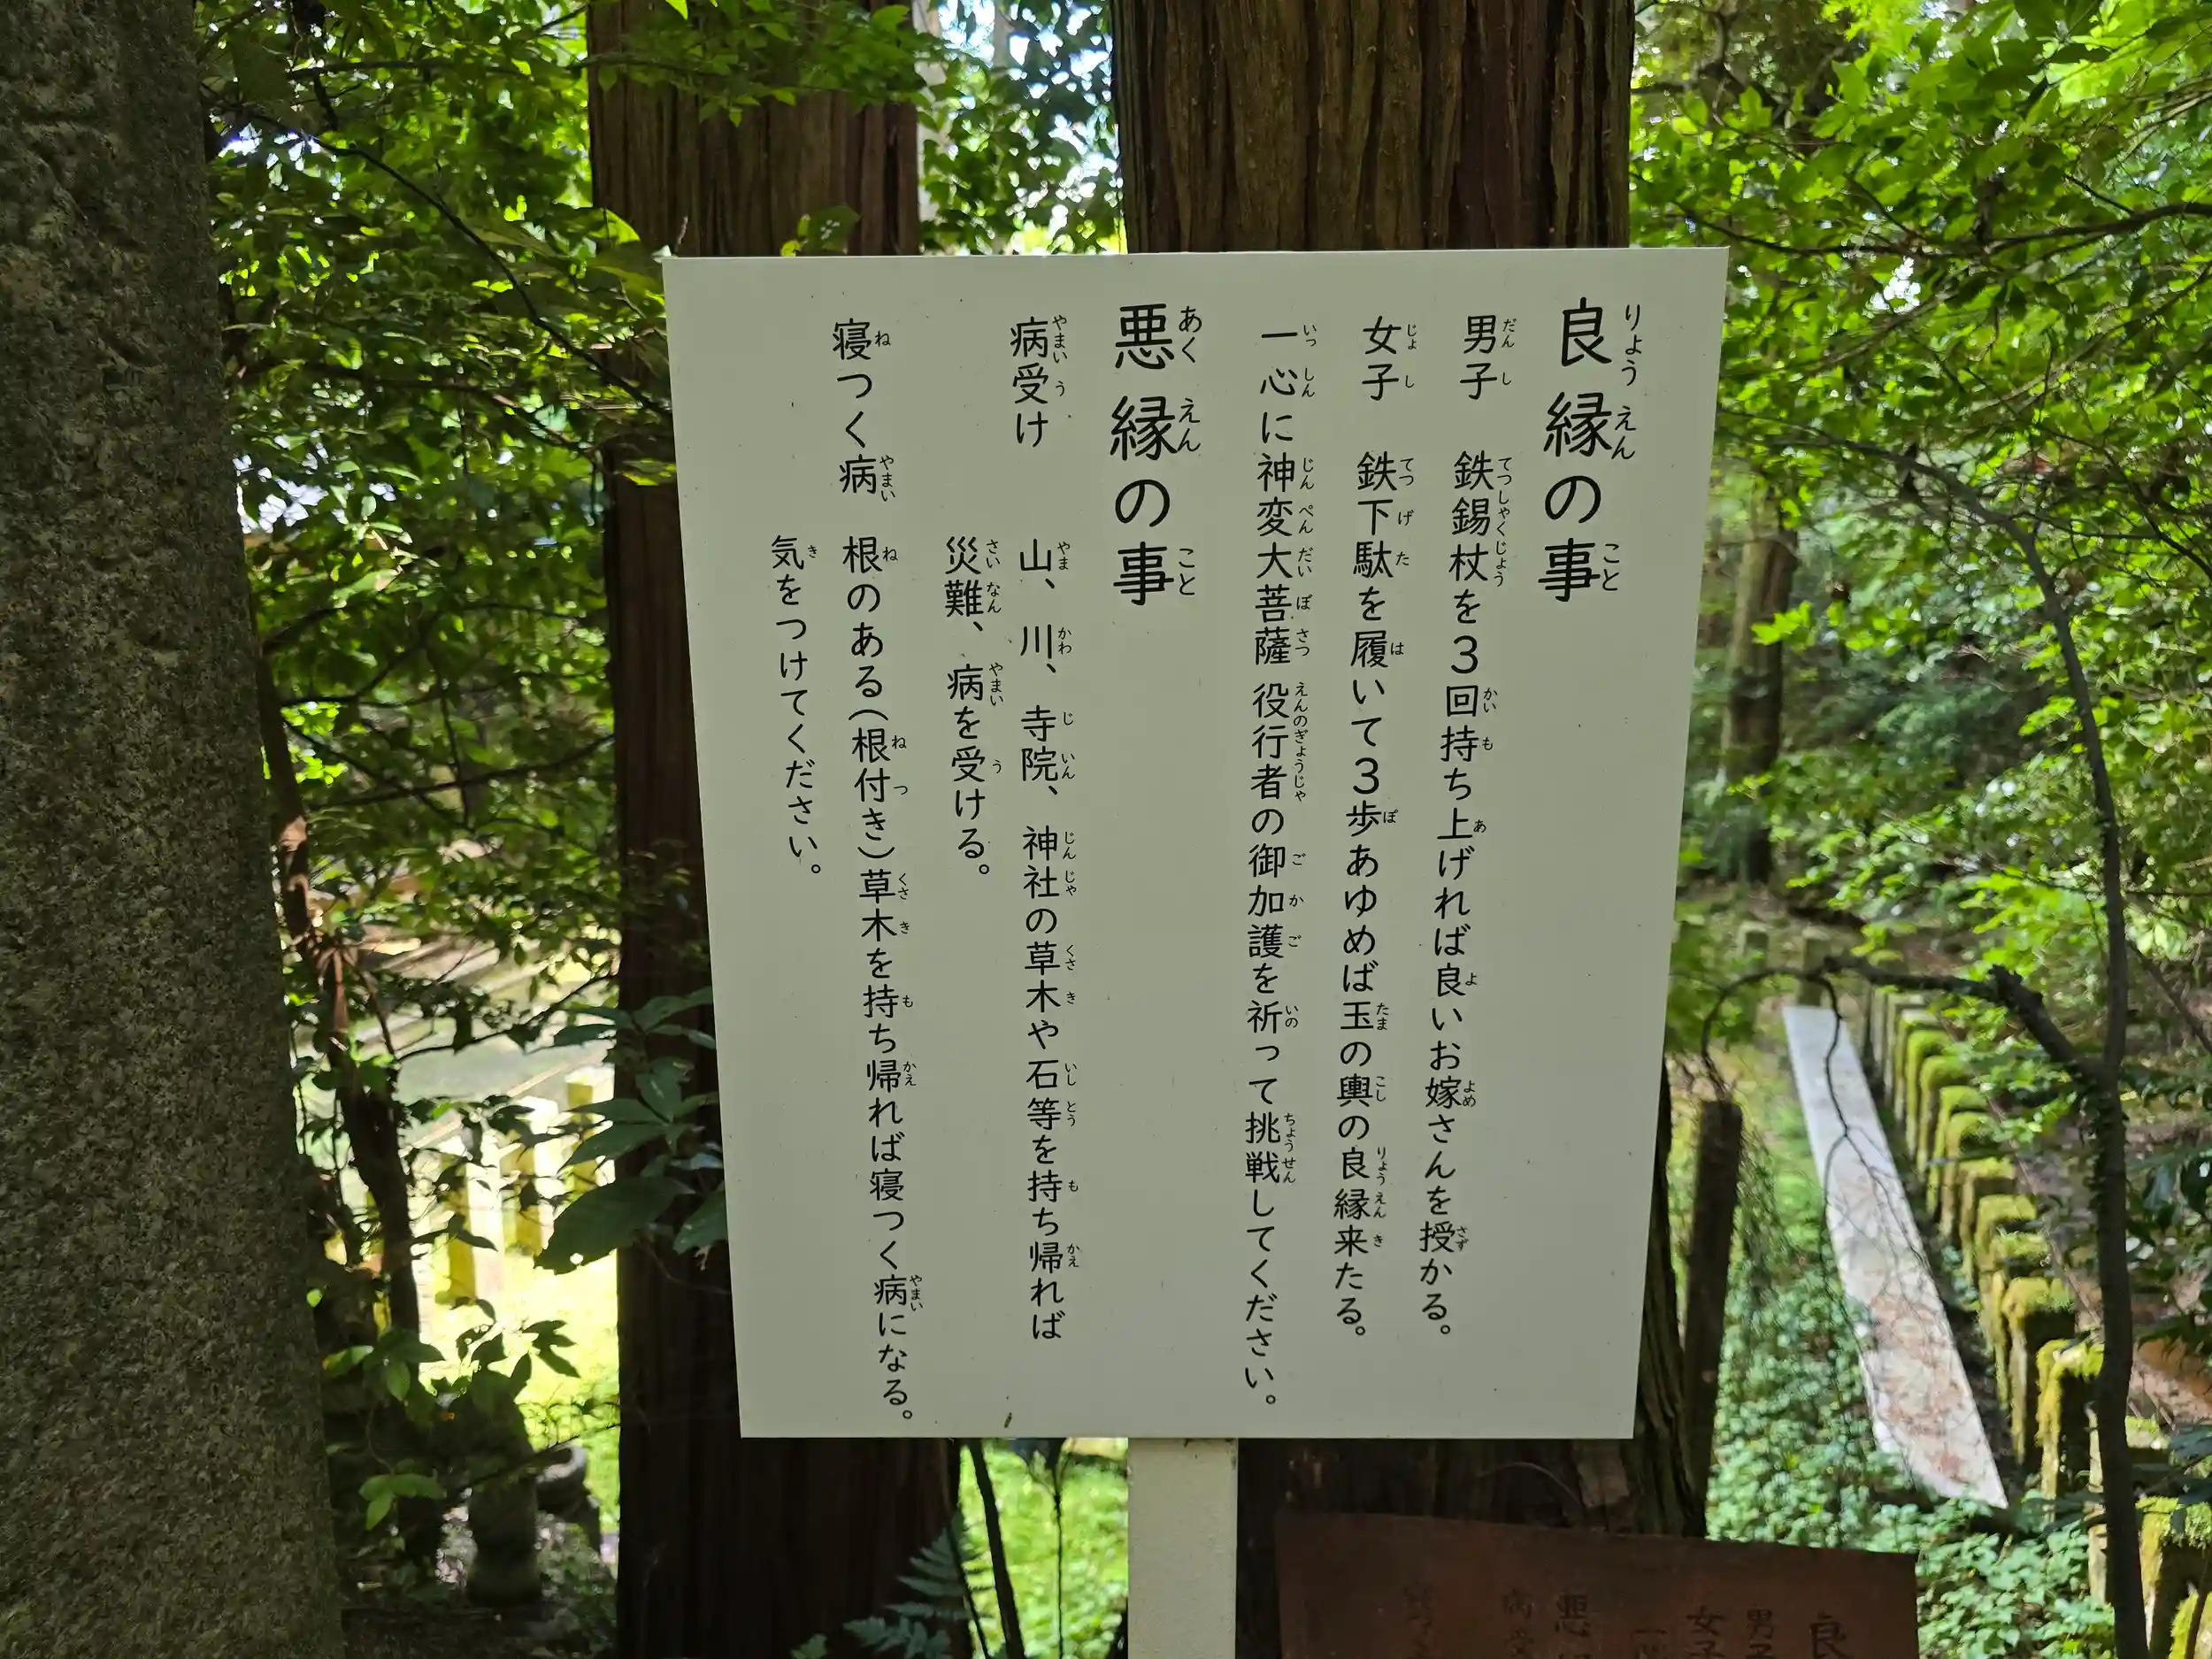 良縁の事
男子 鉄錫杖を3回持ち上げれば良いお嫁さんを授かる。
女子 鉄下駄を履いて3歩あゆめば玉の輿の良縁来たる。
一心に神変大菩薩 役行者の御加護を祈って挑戦してください。
悪縁の事
病受け 山、川、寺院、神社の草木や石等を持ち帰れば
災難、病を受ける。
寝つく病 根のある(根付き)草木を持ち帰れば寝つく病になる。
気をつけてください。
良
男子
女子
一
悪